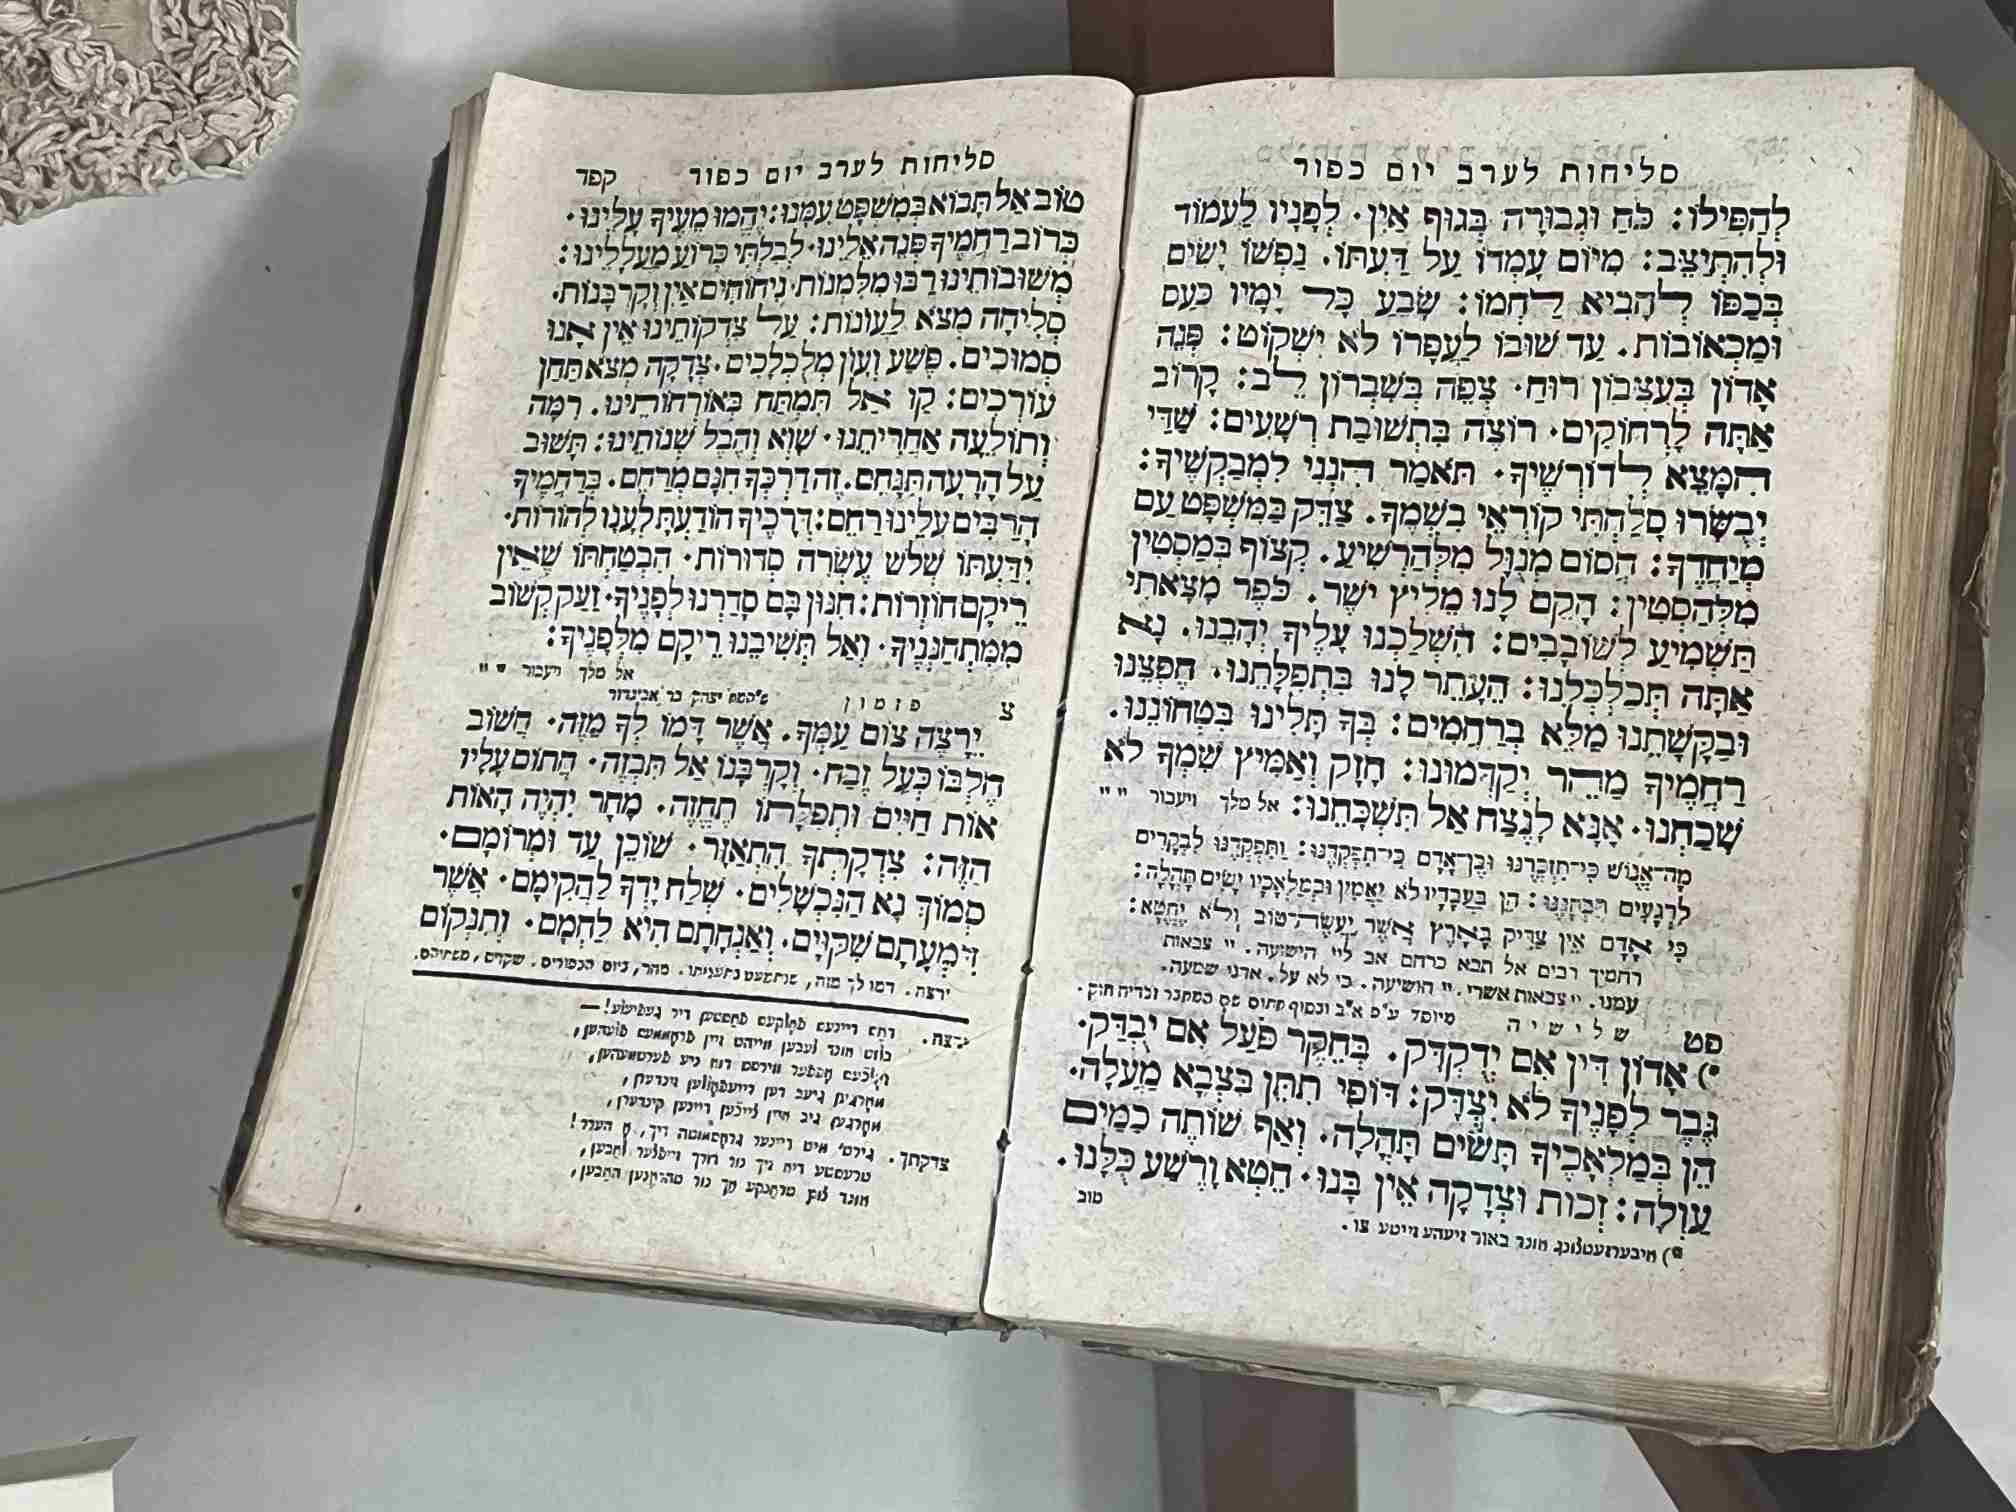 סליחות לערב יום כפור
לְהַפִּילוֹ: כֹּחַ וּגְבוּרָה בְּגוּף אַיִן. לְפָנָיו לַעֲמוֹד
וּלְהִתְיַצֵּב: מִיּוֹם עָמְדוֹ עַל דַּעְתּוֹ. נַפְשׁוֹ יָשִׂים
בְּכַפּוֹ לְהָבִיא לַחְמוֹ: שָׂבֵעַ כָּל יָמָיו כַּעַס
וּמַכְאוֹבוֹת. עַד שׁוּבוֹ לַעֲפָרוֹ לֹא יִשְׁקוֹט: פְּנֵה
אָדוֹן בְּעִצְּבוֹן רוּחַ. צְפֵה בְּשִׁבְרוֹן לֵב: קָרוֹב
אַתָּה לָרְחוֹקִים. רוֹצֶה בִּתְשׁוּבַת רְשָׁעִים: שַׁדַּי
הִמָּצֵא לְדוֹרְשֶׁיךָ. תֹּאמַר הִנְנִי לִמְבַקְשֶׁיךָ:
יְבֻשְּׂרוּ סָלַחְתִּי קוֹרְאֵי בִשְׁמֶךָ. צַדֵּק בַּמִּשְׁפָּט עַם
מְיַחֲדֶךָ: חֲסוֹם מְנֻוָּל מִלְּהַרְשִׁיעַ. קְצוֹף בְּמַסְטִין
מִלְּהַסְטִין: הָקֵם לָנוּ מֵלִיץ יֹשֶׁר. כֹּפֶר מָצָאתִי
תַּשְׁמִיעַ לְשׁוֹבָבִים: הִשְׁלַכְנוּ עָלֶיךָ יְהָבֵנוּ. נָא
אַתָּה תְּכַלְכְּלֵנוּ: הֵעָתֵר לָנוּ בִּתְפִלָּתֵנוּ. חֶפְצֵנוּ
וּבַקָּשָׁתֵנוּ מַלֵּא בְּרַחֲמִים: בְּךָ תָּלִינוּ בִּטְחוֹנֵנוּ.
רַחֲמֶיךָ מַהֵר יְקַדְּמוּנוּ: חָזָק וְאַמִּיץ שִׁמְךָ לֹא
שָׁכַחְנוּ. אָנָּא לָנֶצַח אַל תִּשְׁכָּחֵנוּ: אל מלך ויעבור " "
מָה־אֱנוֹשׁ כִּי־תִזְכְּרֶנּוּ וּבֶן־אָדָם כִּי־תִפְקְדֶנּוּ: וַתִּפְקְדֶנּוּ לִבְקָרִים
לִרְגָעִים תִּבְחָנֶנּוּ: הֵן בַּעֲבָדָיו לֹא יַאֲמִין וּבְמַלְאָכָיו יָשִׂים תָּהֳלָה:
כִּי אָדָם אֵין צַדִּיק בָּאָרֶץ אֲשֶׁר יַעֲשֶׂה־טּוֹב וְלֹא יֶחֱטָא:
רחמיך רבים אל תבא כרחם אב לי" הישועה. י" צבאות
עמנו. י" צבאות אשרי. י" הושיעה. כי לא על. אדני שמעה.
פט שלישיה מיוסד ע"פ א"ב ובסוף חתום שם המחבר זכריה חזק.
*) אֲדוֹן דִּין אִם יְדֻקְדַּק. בְּחֵקֶר פֹּעַל אִם יֻבְדַּק.
גֶּבֶר לְפָנֶיךָ לֹא יִצְדָּק: דּוֹפִי תִתֵּן בִּצְבָא מַעְלָה.
הֵן בְּמַלְאָכֶיךָ תָּשִׂים תָּהֳלָה. וְאַף שׁוֹתֶה כַמַּיִם
עַוְלָה: זְכוּת וּצְדָקָה אֵין בָּנוּ. חֵטְא וָרֶשַׁע כֻּלָּנוּ.
טוב
*) איבערזעטצונג אונד באור זיעהע זייטע צו.
סליחות לערב יום כפור קפד
טוֹב אַל תָּבוֹא בְּמִשְׁפָּט עִמָּנוּ: יֶהֱמוּ מֵעֶיךָ עָלֵינוּ.
כְּרוֹב רַחֲמֶיךָ פְּנֵה אֵלֵינוּ. לְבִלְתִּי כְּרוֹעַ מַעֲלָלֵינוּ:
מְשׁוּבוֹתֵינוּ רַבּוּ מִלִּמְנוֹת. נִיחוֹחִים אַיִן וְקָרְבָּנוֹת.
סְלִיחָה מְצֹא לַעֲוֹנוֹת: עַל צִדְקוֹתֵינוּ אֵין אָנוּ
סְמוּכִים. פֶּשַׁע וְעָוֹן מְלֻכְלָכִים. צְדָקָה מְצֹא תַּחַן
עוֹרְכִים: קַו אַל תִּמְתַּח בְּאוֹרְחוֹתֵינוּ. רִמָּה
וְתוֹלֵעָה אַחֲרִיתֵנוּ. שָׁוְא וְהֶבֶל שְׁנוֹתֵינוּ: תָּשׁוּב
עַל הָרָעָה תִּנָּחֵם. זֶה דַרְכְּךָ חִנָּם מְרַחֵם. בְּרַחֲמֶיךָ
הָרַבִּים עָלֵינוּ רַחֵם: דְּרָכֶיךָ הוֹדַעְתָּ לֶעָנָו לְהוֹרוֹת.
יִדַּעְתּוֹ שְׁלֹשׁ עֶשְׂרֵה סְדוּרוֹת. הִבְטַחְתּוֹ שֶׁאֵין
רֵיקָם חוֹזְרוֹת: חִנּוּן בָּם סָדַרְנוּ לְפָנֶיךָ. זַעַק קְשׁוֹב
מִמִּתְחַנְּנֶיךָ. וְאַל תְּשִׁיבֵנוּ רֵיקָם מִלְּפָנֶיךָ:
אל מלך ויעבור " "
צ פזמון יצחק בר אביגדור
יֵרָצֶה צוֹם עַמְּךָ. אֲשֶׁר דָּמוּ לְךָ מַזֶּה. חֲשׁוֹב
חֶלְבּוֹ כְּעַל זֶבַח. וְקָרְבָּנוֹ אַל תִּבְזֶה. חֲתוֹם עָלָיו
אוֹת חַיִּים וּתְפִלָּתוֹ תֶחֱזֶה. מָחָר יִהְיֶה הָאוֹת
הַזֶּה: צִדְקָתְךָ הִתְאַזָּר. שׁוֹכֵן עַד וּמְרוֹמָם.
סְמוֹךְ נָא הַנִּכְשָׁלִים. שְׁלַח יָדְךָ לַהֲקִימָם. אֲשֶׁר
דִּמְעָתָם שִׁקּוּיָם. וְאַנְחָתָם הִיא לַחְמָם. וְתִנְקוֹם
ירצה. דמו לך מזה, שנתמעט בתעניתו. מחר, ביום הכפורים. שקוים, משתיהם.
ירצה. דיר געפאללע! —
בלוט אונד לעבען ווייהט זיין
אָפּפער
מאָרגען גיעב דען
מאָרגען גיב איין דיינען קינדערן,
צדקתך. גירט' מיט דיינער דיך, אָ הערר!
לאַבען,
אונד האַבען,